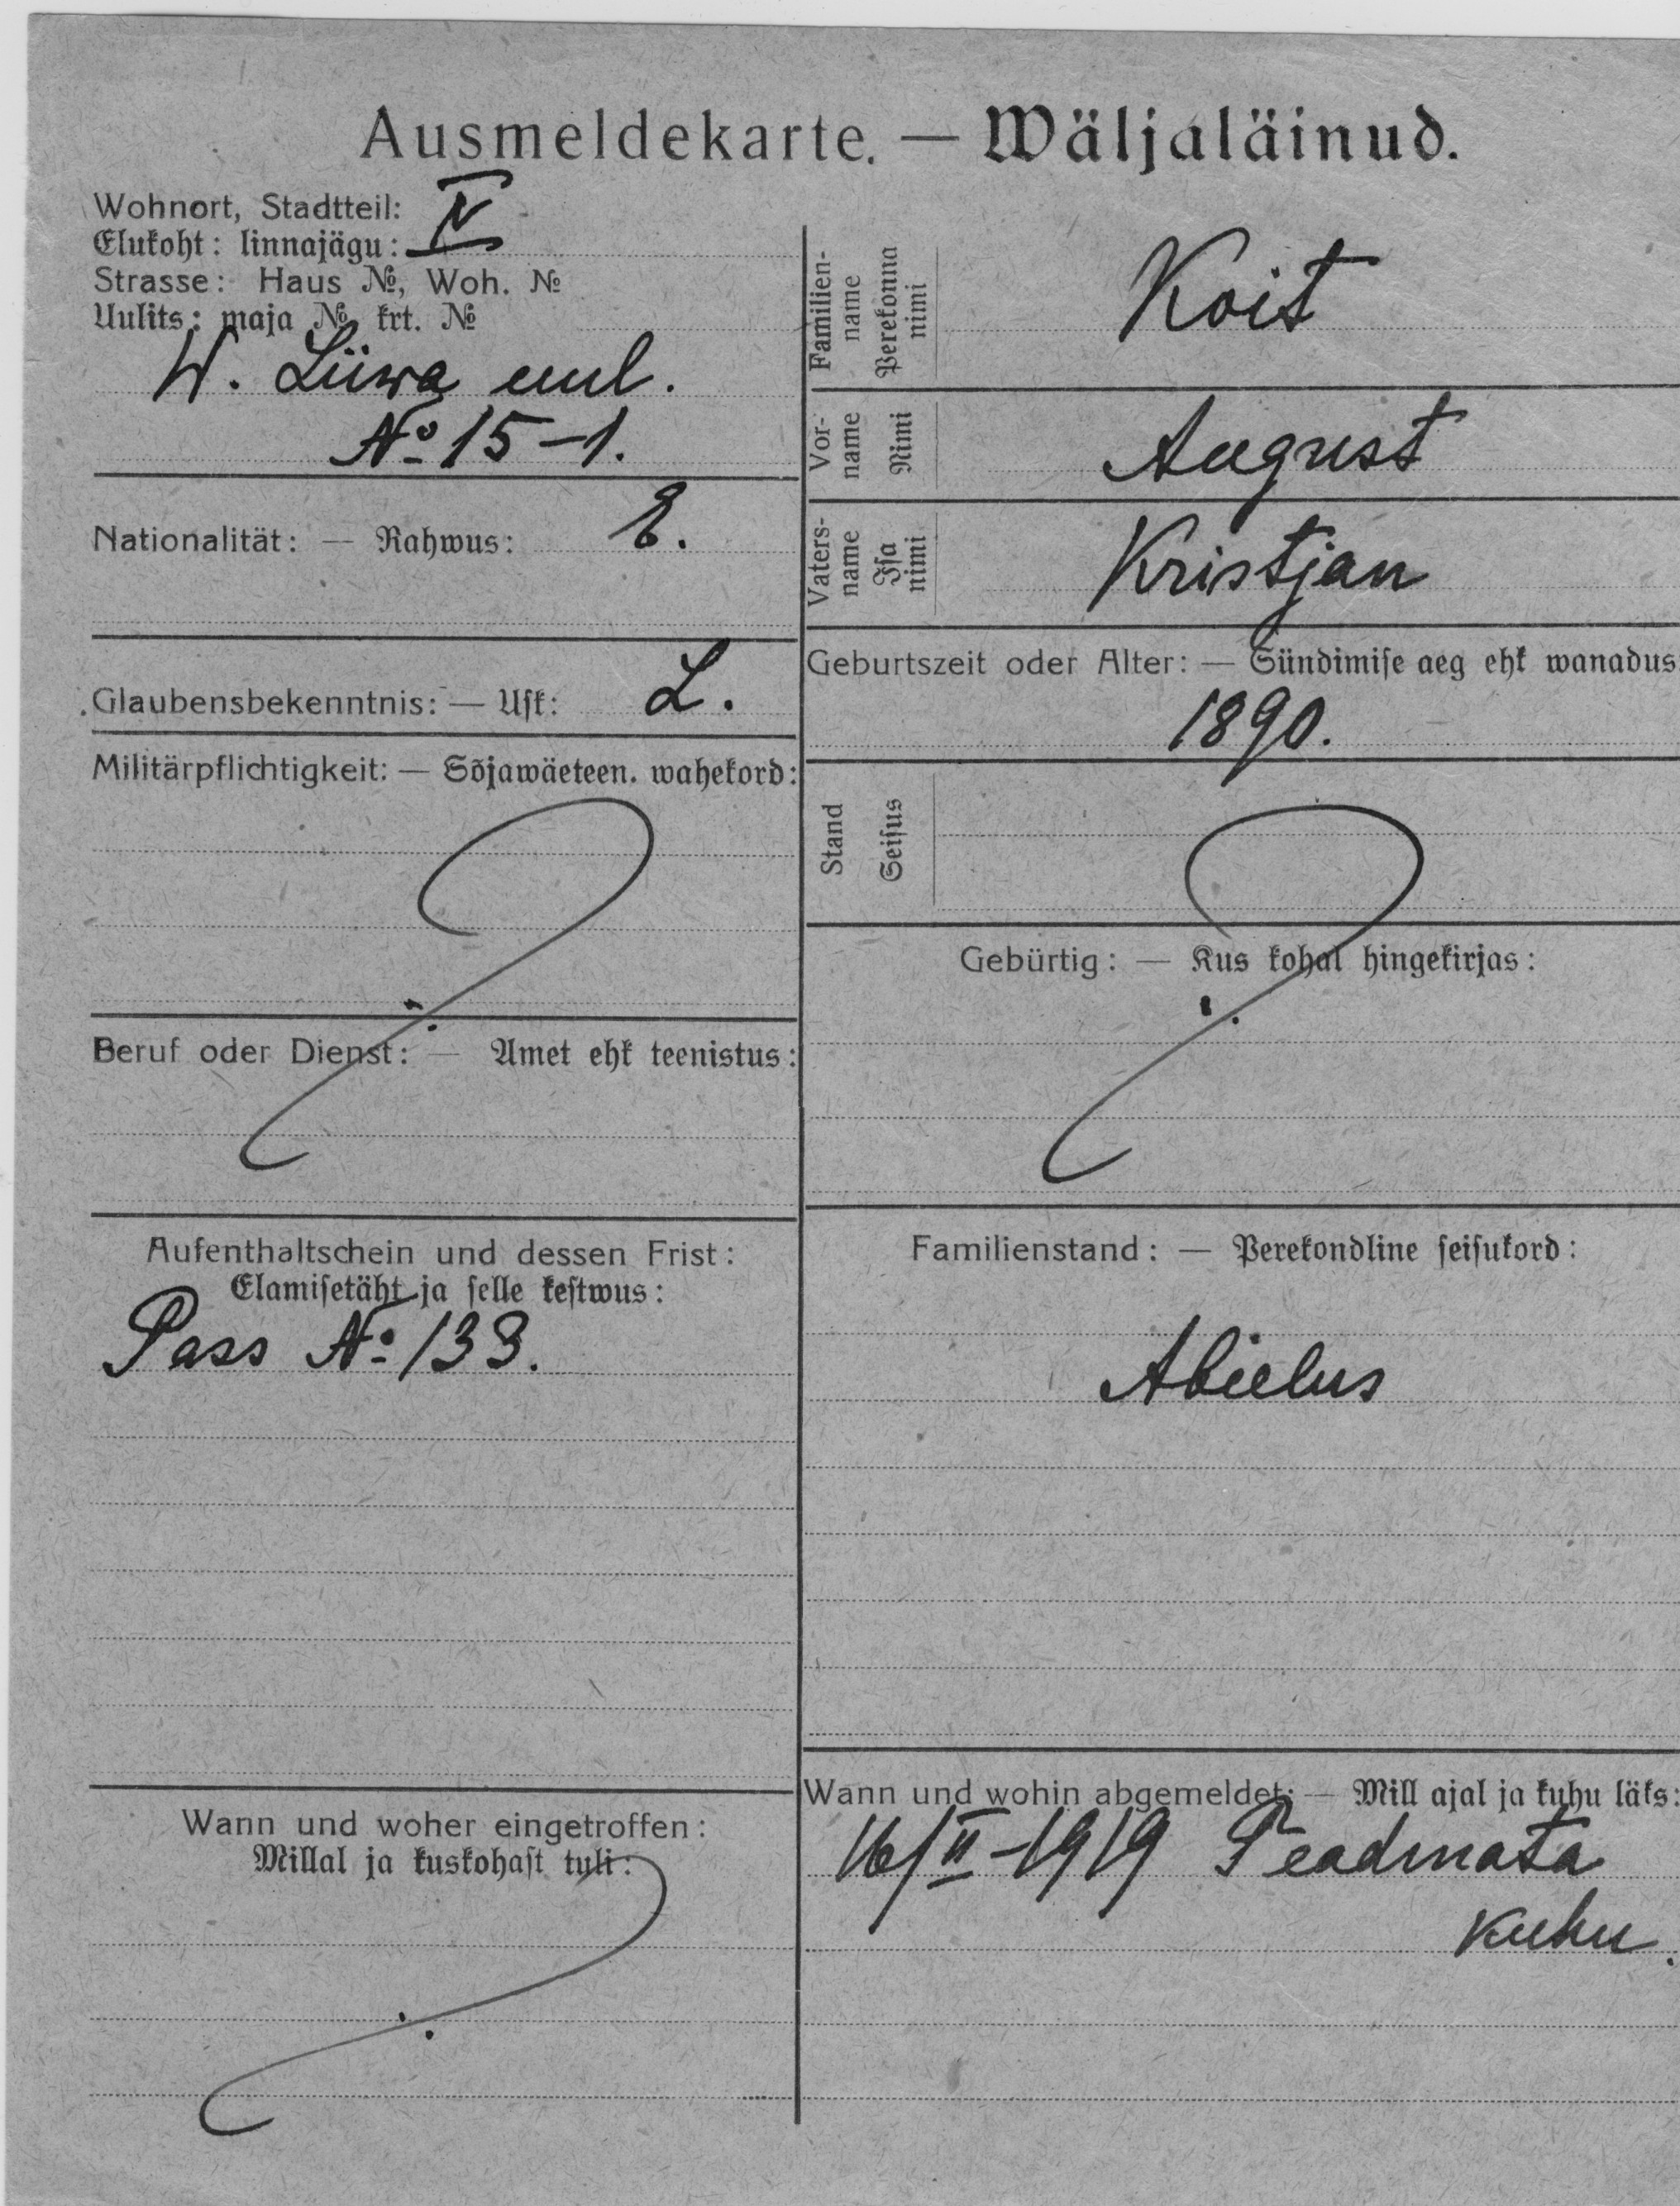 Ausmeldekarte. — Wäljaläinud.
Wohnort, Stadtteil:
Elukoht: linnajägu: IV
Strasse: Haus №, Woh. №
Uulits: maja № krt. №
W. Liiwa uul.
№ 15-1.
Nationalität: — Rahwus: E.
Glaubensbekenntnis: — Usk: L.
Militärpflichtigkeit: — Sõjawäeteen. wahekord:
Beruf oder Dienst: — Amet ehk teenistus:
Aufenthaltschein und dessen Frist:
Elamisetäht ja selle kestwus:
Pass № 133.
Wann und woher eingetroffen:
Millal ja kuskohast tuli:
Familien-
name
Perekonna
nimi
Koit
Vor-
name
Nimi
August
Vaters-
name
Isa
nimi
Kristjan
Geburtszeit oder Alter: — Sündimise aeg ehk wanadus
1890.
Stand
Seisus
Gebürtig: — Kus kohal hingekirjas:
Familienstand: — Perekondline seisukord:
Abielus
Wann und wohin abgemeldet: — Mill ajal ja kuhu läks:
16/II-1919 Teadmata
kuhu.